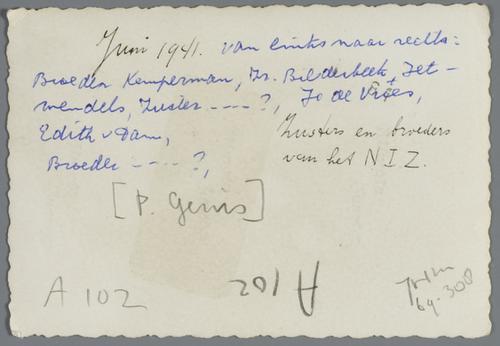 Juni 1941. van links naar rechts:
Broeder Kemperman, Zr. Bilderbeek, Jet-
wendels, Zuster ----?, Jo de Vries,
Edith v Dam,
Broeder ----?,
Zusters en broeders
van het N.I.Z.
[P. Genis]
A 102
A 102
64-308